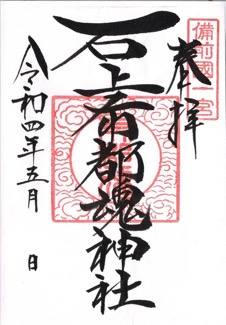 備前國一宮
奉拝
石上布都魂神社
令和四年五月 日